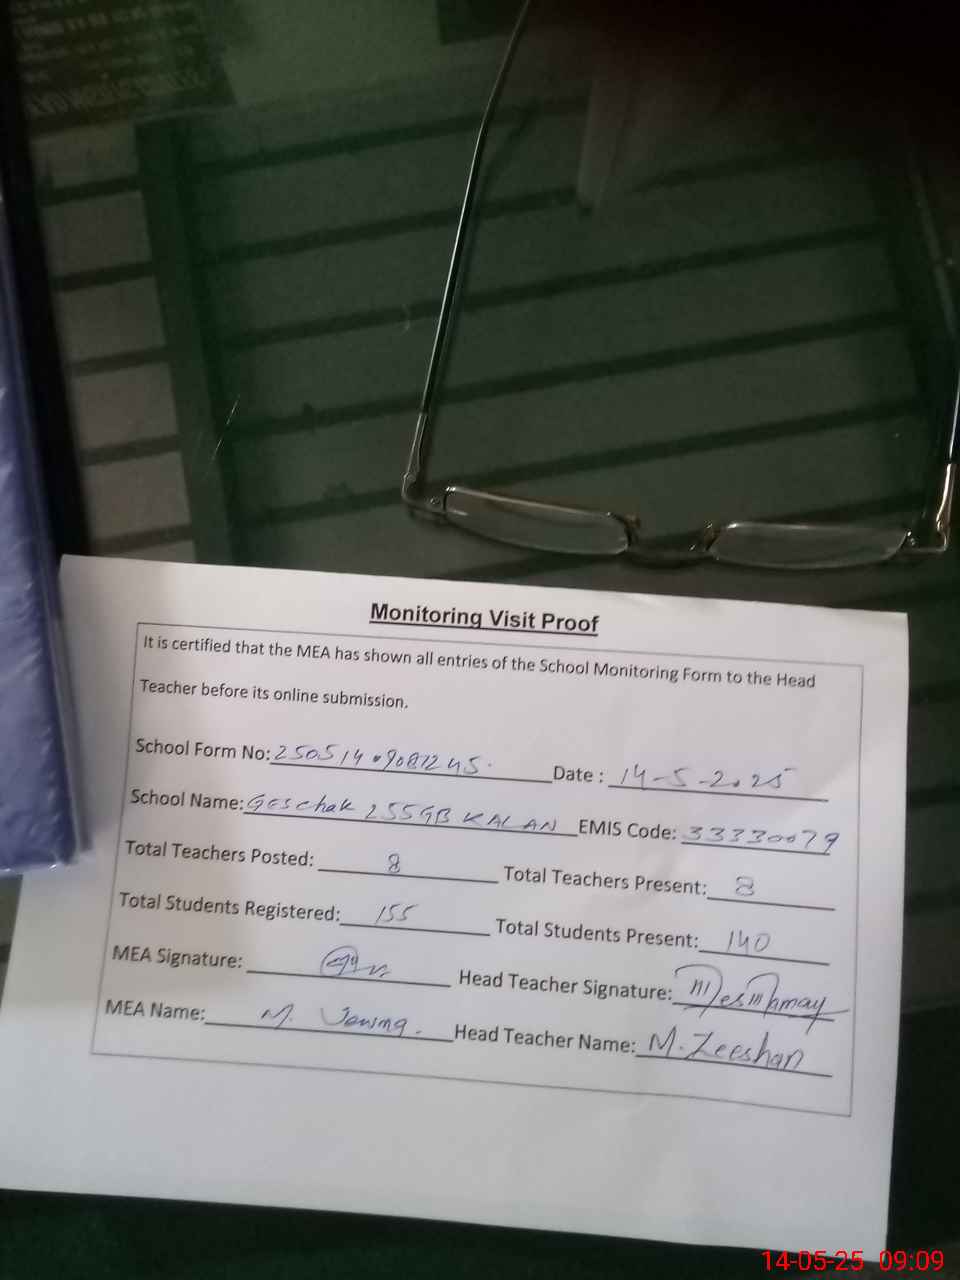 Monitoring Visit Proof
It is certified that the MEA has shown all entries of the School Monitoring Form to the Head
Teacher before its online submission.
School Form No: Date : 14-5-2025
School Name: GES chak 255GB KALAN EMIS Code: 33330079
Total Teachers Posted: 8 Total Teachers Present: 8
Total Students Registered: 155 Total Students Present: 140
MEA Signature: Head Teacher Signature:
MEA Name: M. Head Teacher Name: M. Zeeshan
14-05-25 09:09